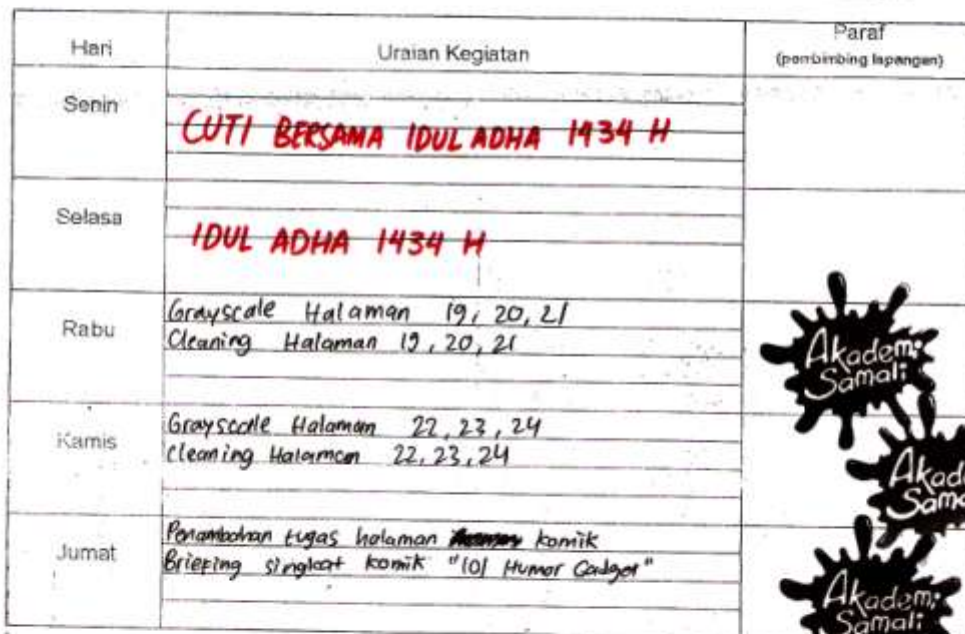 Hari
Uraian Kegiatan
Paraf
(pembimbing lapangan)
Senin
CUTI BERSAMA IDUL ADHA 1434 H
Selasa
IDUL ADHA 1434 H
Rabu
Grayscale Halaman 19, 20, 21
Cleaning Halaman 19, 20, 21
Akademi
Samali
Kamis
Grayscale Halaman 22, 23, 24
Cleaning Halaman 22, 23, 24
Akade
Sama
Jumat
Penambahan tugas halaman komik
Briefing singkat komik "101 Humor Gadget"
Akademi
Samali